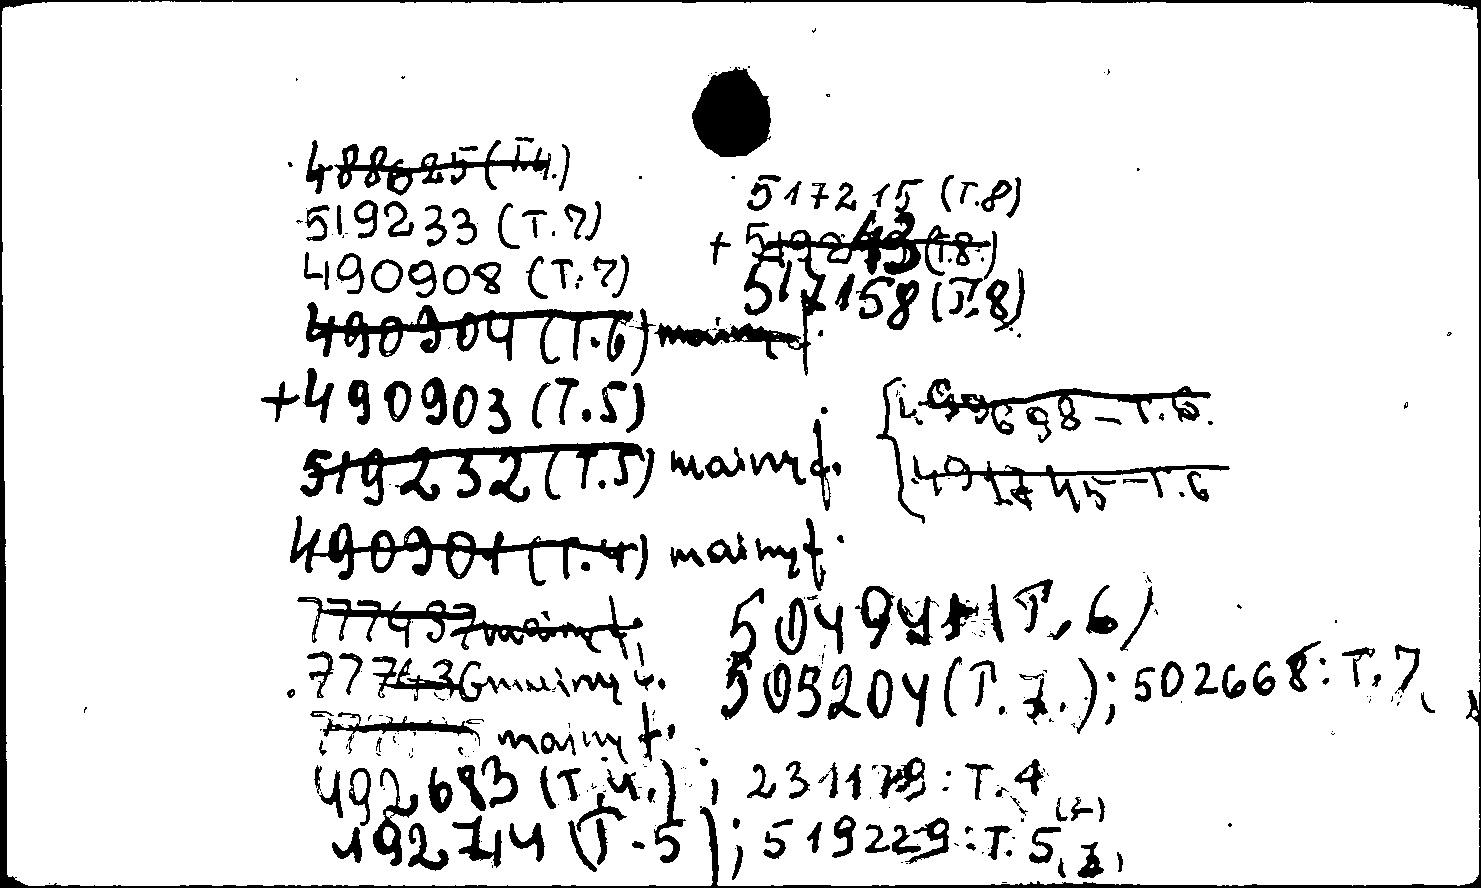 488625 (T.4.)
519233 (T.7)
490908 (T.7)
490904 (T.6) mainyt.
+490903 (T.5)
519232 (T.5) mainyt.
490901 (T.4) mainyt.
777437 mainyt.
777436 mainyt.
mainyt.
492683 (T.4.); 231179: T.4
492744 (T.5); 519229: T.5
517215 (T.8)
+ (T.8.)
517158 (T.8)
499698 – T.6.
T.6
504941 (T.6)
505204 (T.7.); 502668: T.7